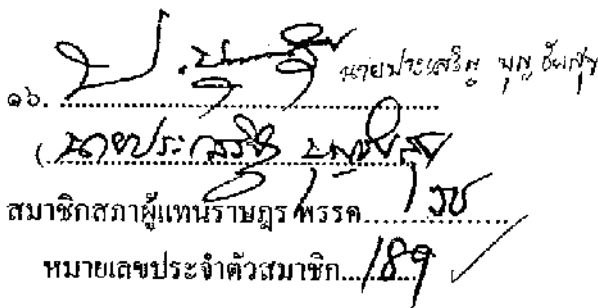 ๑๖. นายประเสริฐ บุญชัยสุข
(นายประเสริฐ บุญชัยสุข
สมาชิกสภาผู้แทนราษฎร พรรค
หมายเลขประจำตัวสมาชิก 189